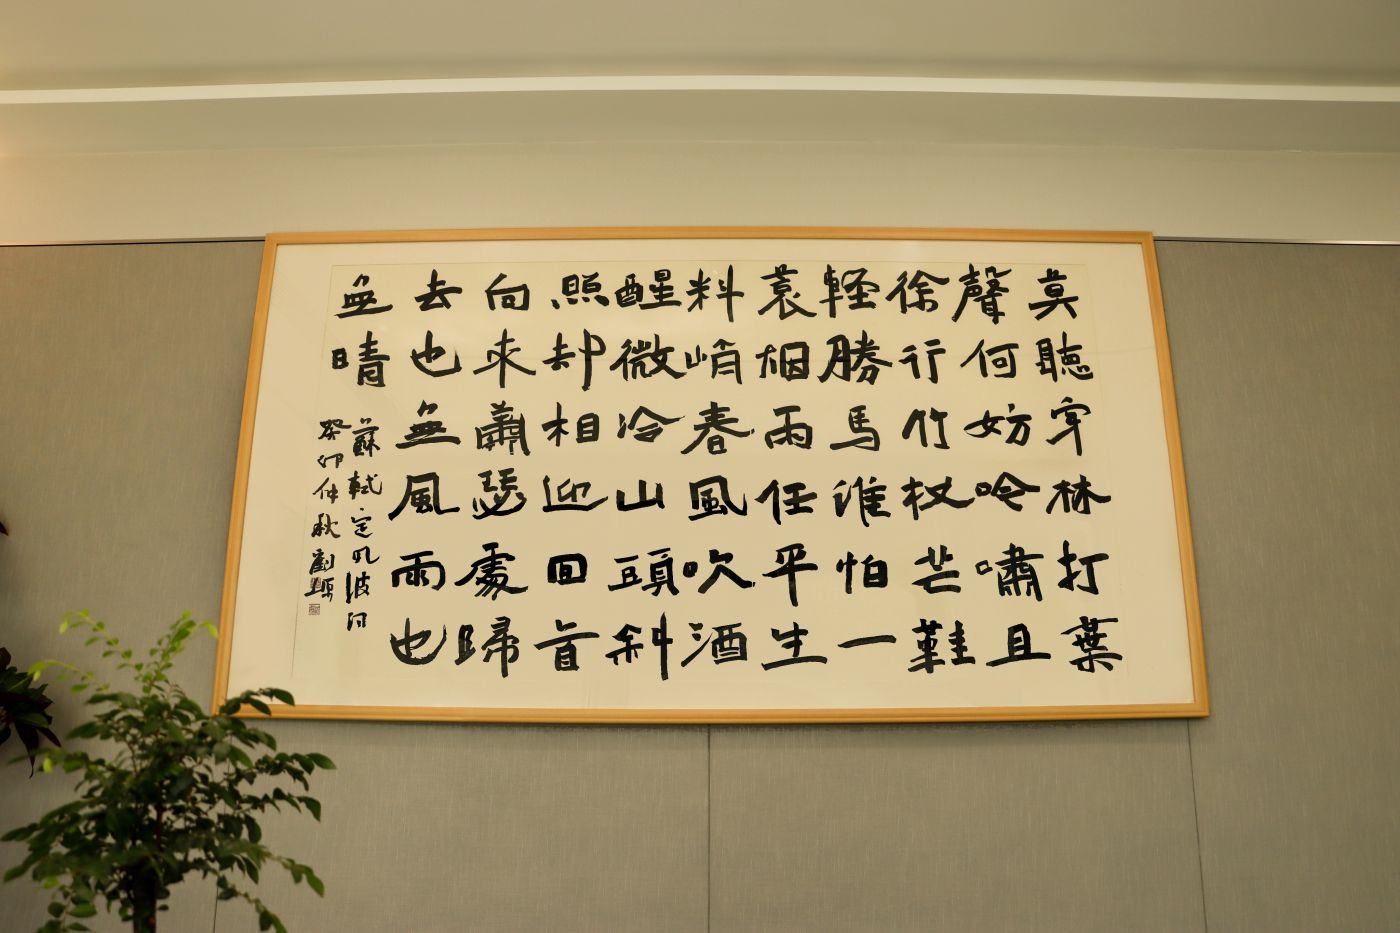 莫聽穿林打葉
聲何妨吟嘯且
徐行竹杖芒鞋
輕勝馬谁怕一
蓑烟雨任平生
料峭春風吹酒
醒微冷山頭斜
照却相迎回首
向來蕭瑟處歸
去也無風雨也
無晴
蘇軾定風波詞
癸卯仲秋劉